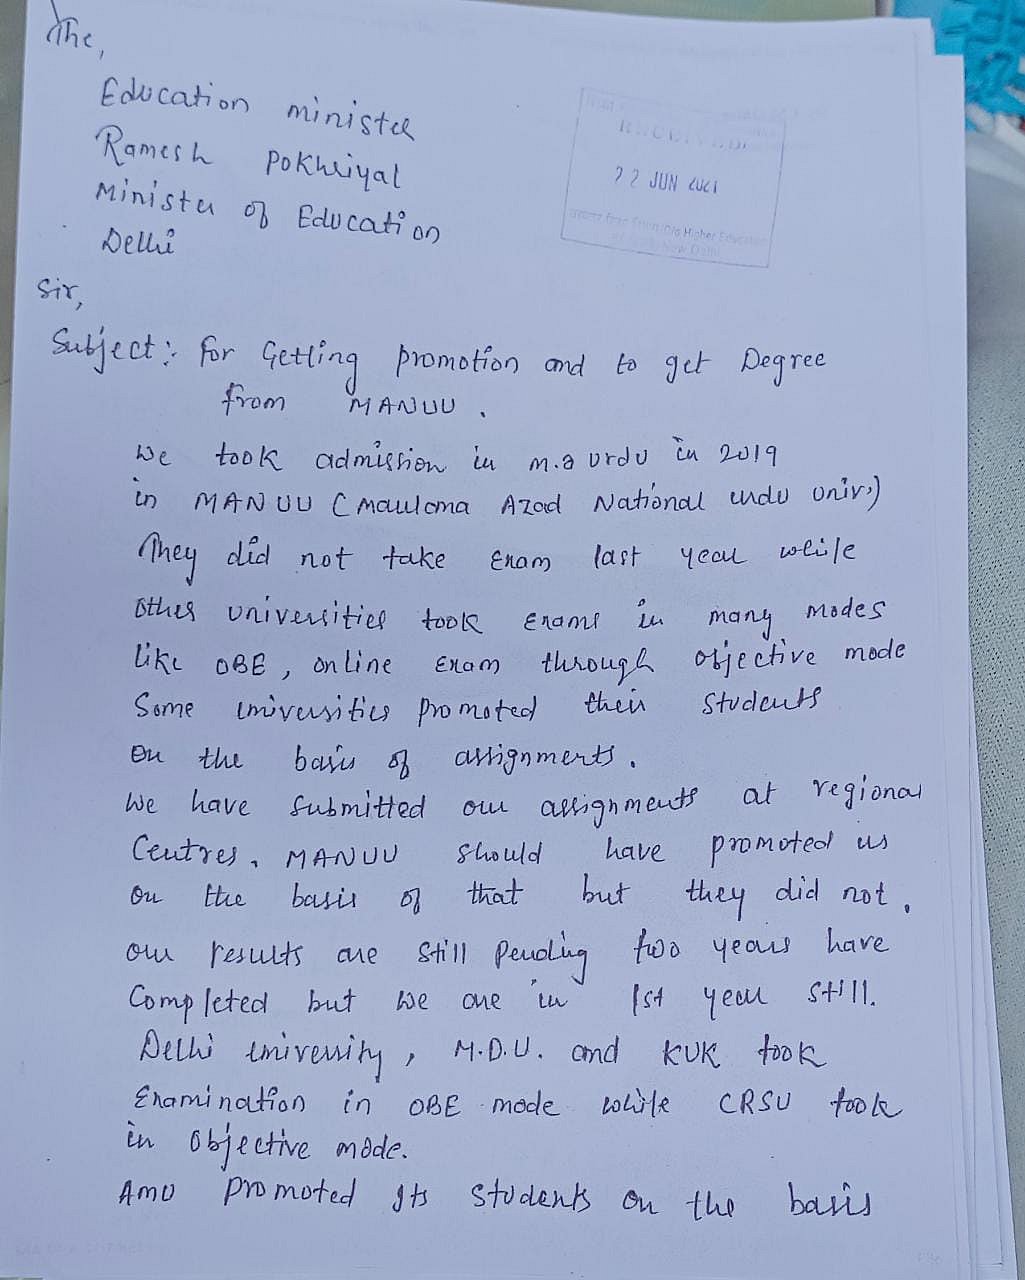 The,
Education minister
Ramesh Pokhriyal
Minister of Education
Delhi
22 JUN 2021
Higher Education
New Delhi
Sir,
Subject:- For Getting promotion and to get Degree
from MANUU.
We took admission in m.a urdu in 2019
in MANUU (Maulana Azad National urdu univ.)
They did not take Exam last year while
other universities took Exams in many modes
like OBE, online Exam through objective mode
Some universities promoted their students
on the basis of assignments.
We have submitted our assignments at regional
Centres. MANUU should have promoted us
on the basis of that but they did not.
our results are still pending two years have
Completed but we are in 1st year still.
Delhi university, M.D.U. and KUK took
Examination in OBE mode while CRSU took
in objective mode.
AMU promoted Its students on the basis